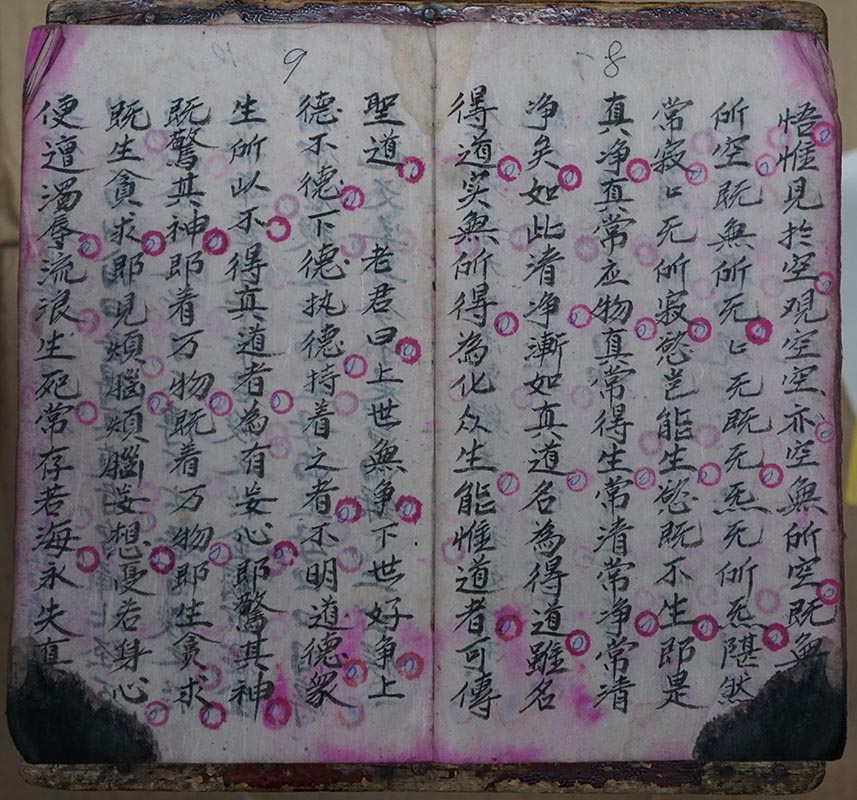 8
悟惟見扵空观空空亦空無所空既無
所空既無所无匕无既无炁无所炁堪然
常寂匕无所寂慾岂能生慾既不生即是
真净真常应物真常得生常清常净常清
净矣如此清净漸如真道名為得道雖名
得道实無所得為化众生能惟道者可傳
9
聖道 老君曰上世無争下世好争上
德不德下德执德持着之者不明道德衆
生所以不得真道者為有妄心即驚其神
既驚其神即着万物既着万物即生貪求
既生貪求即見煩惱煩惱妄想憂若身心
便遭濁辱流浪生死常存若海永失真